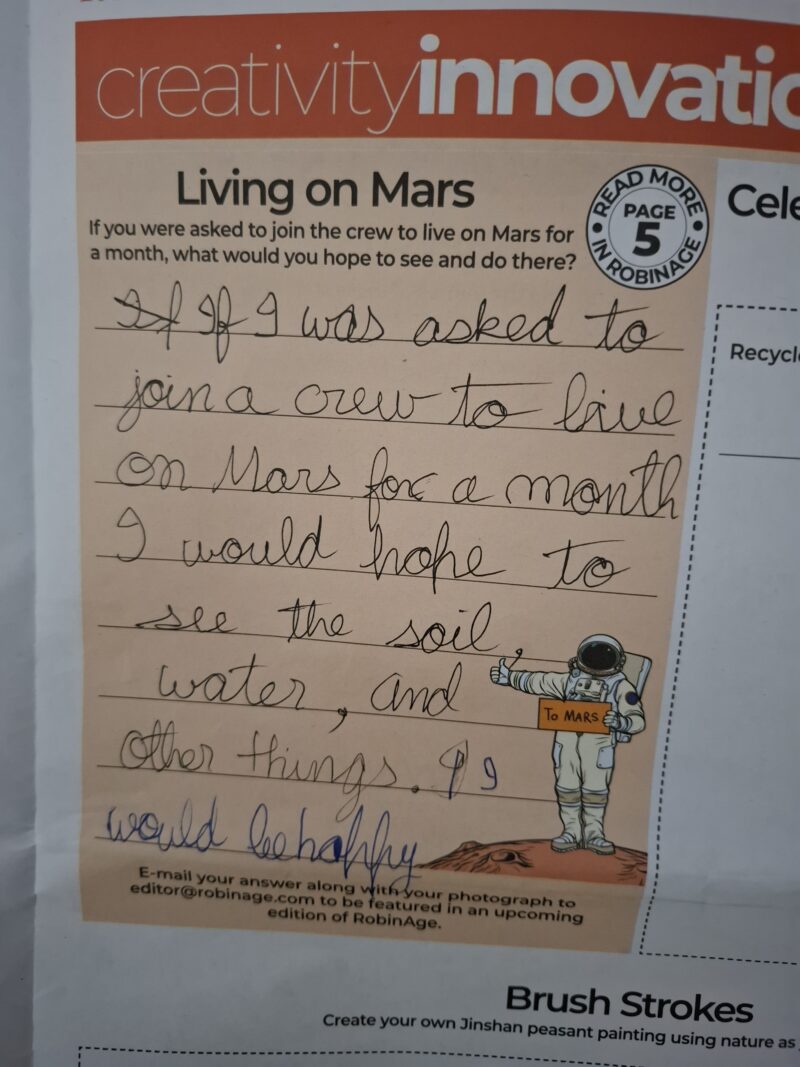 creativityinnovatio
Living on Mars
If you were asked to join the crew to live on Mars for
a month, what would you hope to see and do there?
READ MORE
PAGE
5
IN ROBINAGE
Cele
Recycle
If If I was asked to
join a crew to live
on Mars for a month
I would hope to
see the soil,
water, and
other things. I I
would be happy
TO MARS
E-mail your answer along with your photograph to
editor@robinage.com to be featured in an upcoming
edition of RobinAge.
Brush Strokes
Create your own Jinshan peasant painting using nature as